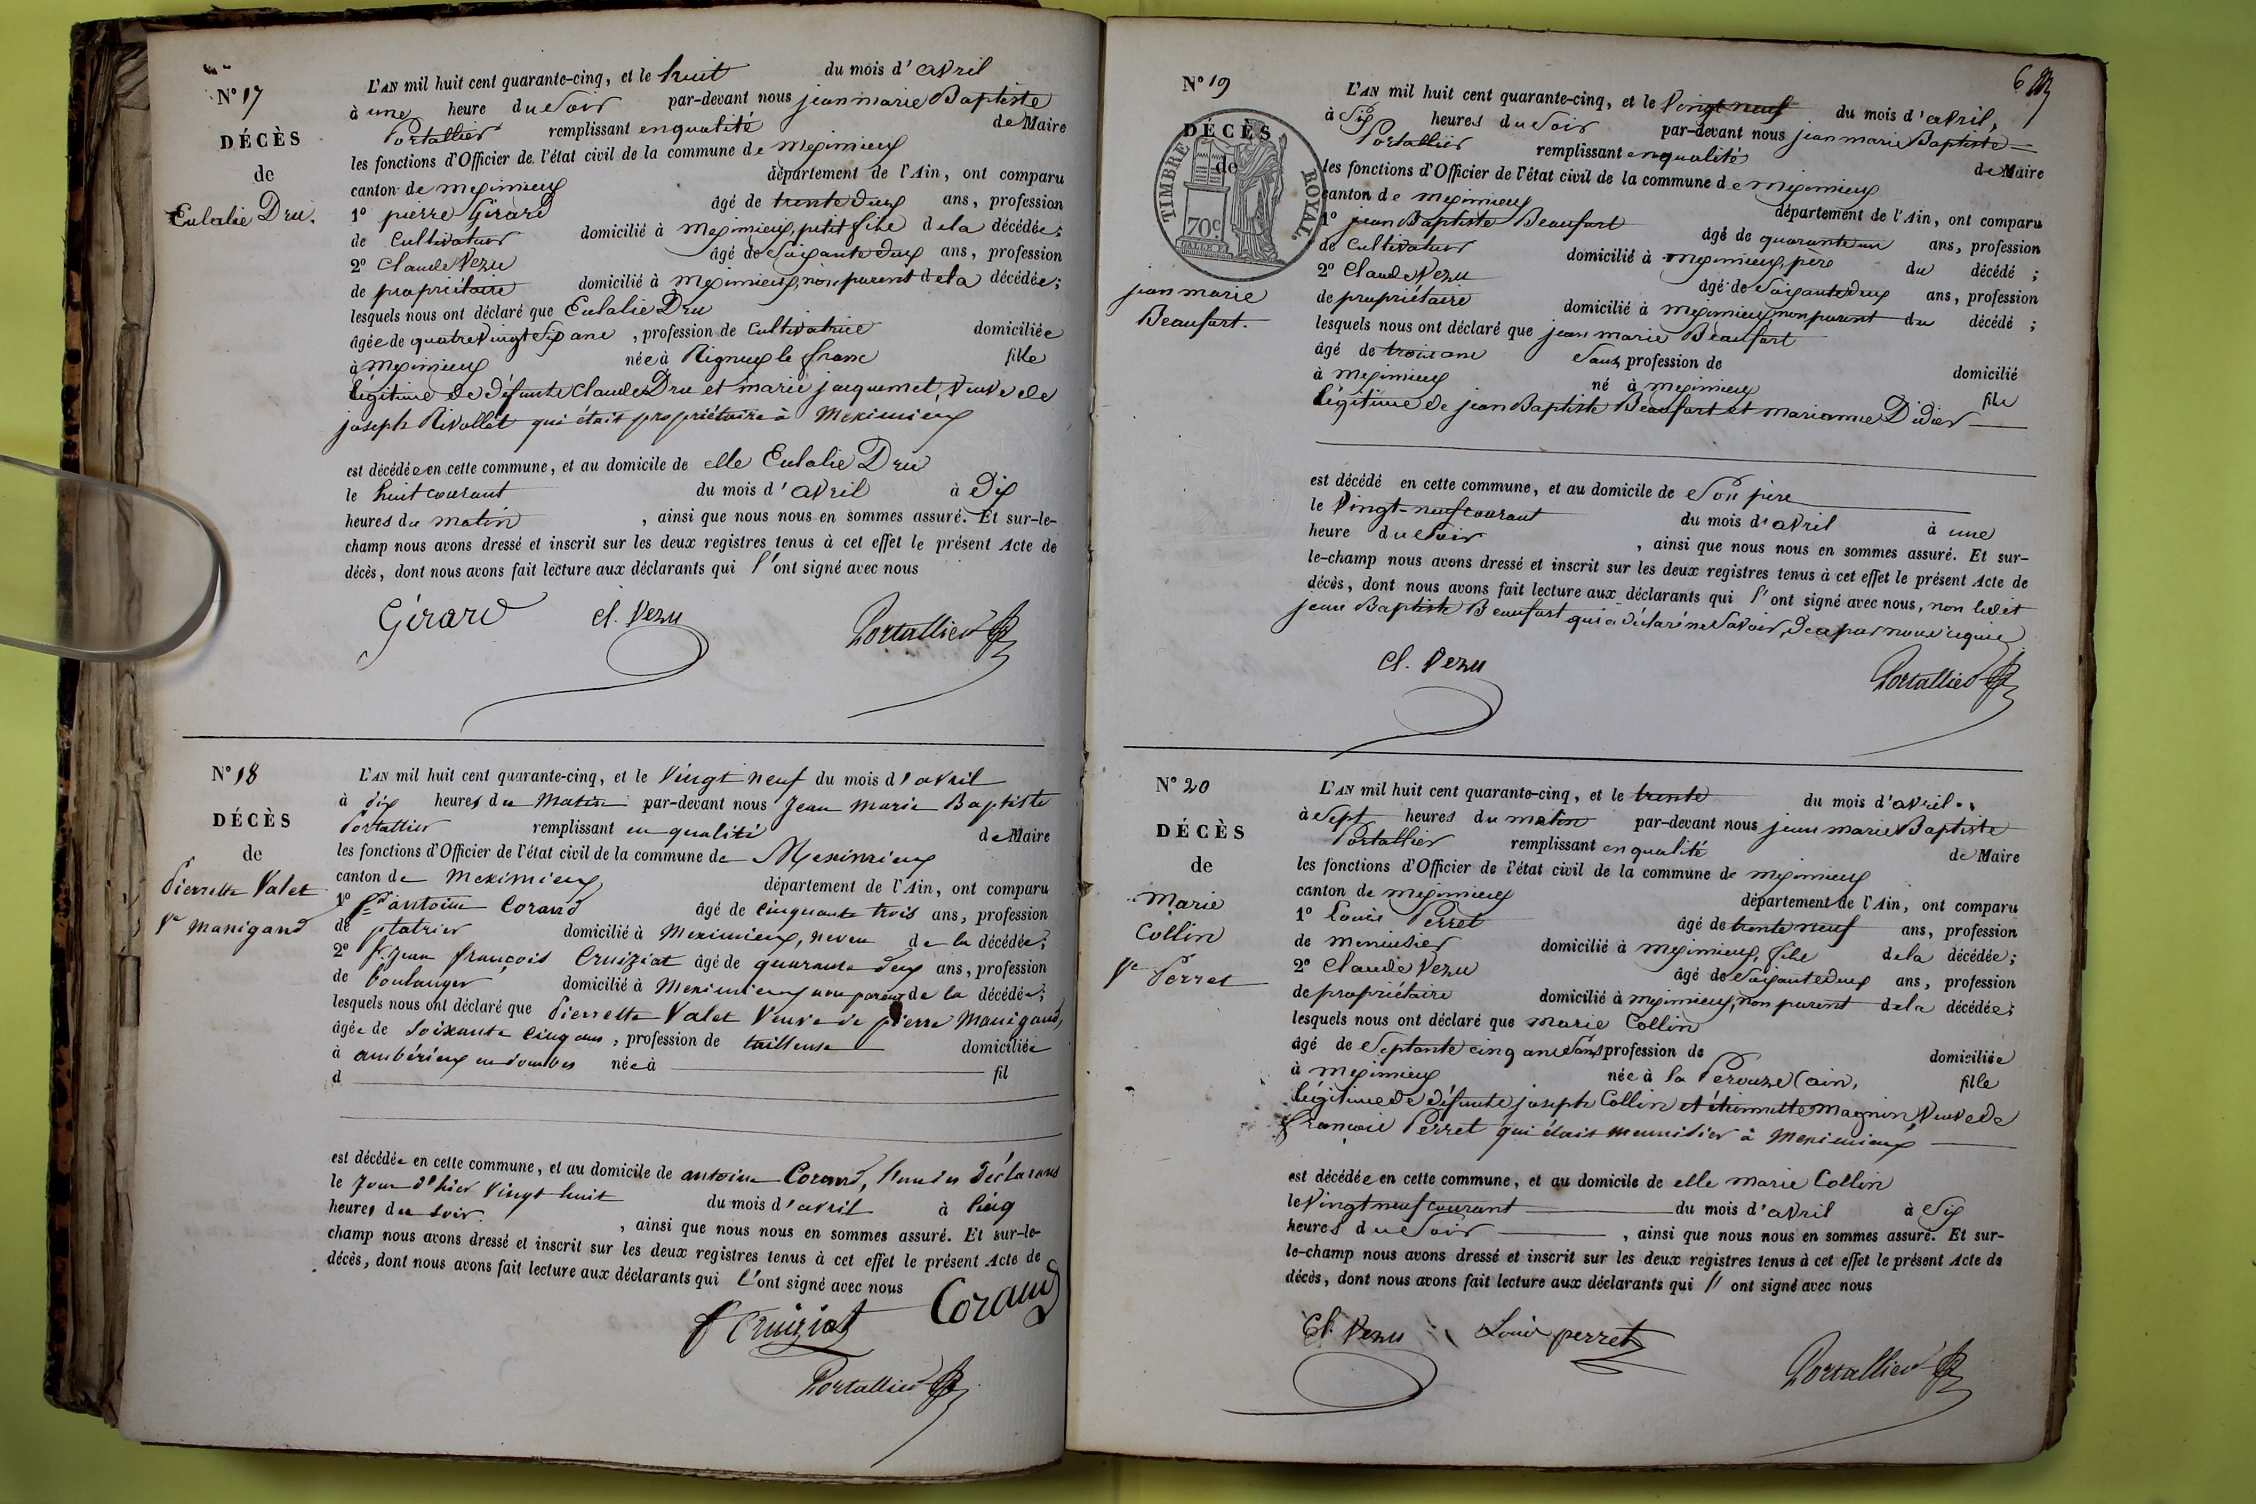 N° 17
DÉCÈS
de
Eulalie Dru.
L'AN mil huit cent quarante-cinq, et le huit du mois d'avril
à une heure du Soir par-devant nous jean marie Baptiste
Portallier remplissant en qualité de Maire
les fonctions d'Officier de l'état civil de la commune de meximieux
canton de meximieux département de l'Ain, ont comparu
1° pierre Girard âgé de trente deux ans, profession
de Cultivateur domicilié à meximieux, petit fils de la décédée;
2° Claude Vezu âgé de Soixante deux ans, profession
de propriétaire domicilié à meximieux, non parent de la décédée;
lesquels nous ont déclaré que Eulalie Dru
âgée de quatre Vingt Six ans, profession de Cultivatrice domiciliée
à meximieux née à Rignieux le franc fille
légitime de défunts Claude Dru et marie jacquemet, Veuve de
joseph Rivollet qui était propriétaire à Meximieux
est décédée en cette commune, et au domicile de elle Eulalie Dru
le huit courant du mois d'avril à Dix
heures du matin, ainsi que nous nous en sommes assuré. Et sur-le-
champ nous avons dressé et inscrit sur les deux registres tenus à cet effet le présent Acte de
décès, dont nous avons fait lecture aux déclarants qui l'ont signé avec nous
Girard Cl. Vezu Portallier
N° 18
DÉCÈS
de
Pierrette Valet
Ve Manigand
L'AN mil huit cent quarante-cinq, et le Vingt neuf du mois d'avril
à dix heures du Matin par-devant nous Jean Marie Baptiste
Portallier remplissant en qualité de Maire
les fonctions d'Officier de l'état civil de la commune de Meximieux
canton de Meximieux département de l'Ain, ont comparu
1° antoine Corand âgé de Cinquante trois ans, profession
de platrier domicilié à Meximieux, neveu de la décédée;
2° Jean françois Cruiziat âgé de quarante deux ans, profession
de boulanger domicilié à Meximieux non parent de la décédée;
lesquels nous ont déclaré que Pierrette Valet Veuve de pierre Manigand,
âgée de Soixante Cinq ans, profession de tailleuse domiciliée
à ambérieux en dombes née à fil
d
est décédée en cette commune, et au domicile de antoine Corand, l'un des déclarans
le Jour d'hier Vingt huit du mois d'avril à Cinq
heures du soir. , ainsi que nous nous en sommes assuré. Et sur-le-
champ nous avons dressé et inscrit sur les deux registres tenus à cet effet le présent Acte de
décès, dont nous avons fait lecture aux déclarants qui l'ont signé avec nous
f Cruiziat Corand
Portallier
6
N° 19
DÉCÈS
de
TIMBRE ROYAL.
70c
jean marie
Beaufort.
L'AN mil huit cent quarante-cinq, et le Vingt neuf du mois d'avril,
à Six heures du Soir par-devant nous jean marie Baptiste
Portallier remplissant en qualité de Maire
les fonctions d'Officier de l'état civil de la commune de meximieux
canton de meximieux département de l'Ain, ont comparu
1° jean Baptiste Beaufort âgé de quarante un ans, profession
de Cultivateur domicilié à meximieux, père du décédé;
2° Claude Vezu âgé de Soixante deux ans, profession
de propriétaire domicilié à meximieux, non parent du décédé;
lesquels nous ont déclaré que jean marie Beaufort
âgé de trois ans Sans profession de domicilié
à meximieux né à meximieux fils
légitime de jean Baptiste Beaufort et marianne Didier
est décédé en cette commune, et au domicile de Son père
le Vingt-neuf courant du mois d'avril à une
heure du Soir, ainsi que nous nous en sommes assuré. Et sur-
le-champ nous avons dressé et inscrit sur les deux registres tenus à cet effet le présent Acte de
décès, dont nous avons fait lecture aux déclarants qui l'ont signé avec nous, non ledit
jean Baptiste Beaufort qui a déclaré ne Savoir, de ce par nous requis
Cl. Vezu Portallier
N° 20
DÉCÈS
de
Marie
Collin
Ve Perret
L'AN mil huit cent quarante-cinq, et le trente du mois d'avril.
à Sept heures du matin par-devant nous jean marie Baptiste
Portallier remplissant en qualité de Maire
les fonctions d'Officier de l'état civil de la commune de meximieux
canton de meximieux département de l'Ain, ont comparu
1° Louis Perret âgé de trente neuf ans, profession
de menuisier domicilié à meximieux, fils de la décédée;
2° Claude Vezu âgé de Soixante deux ans, profession
de propriétaire domicilié à meximieux, non parent de la décédée;
lesquels nous ont déclaré que marie Collin
âgé de Septante cinq ans Sans profession de domiciliée
à meximieux née à la Perouze (ain, fille
légitime de défunts joseph Collin et étiennette Magnin, Veuve de
françois Perret qui était menuisier à Meximieux
est décédée en cette commune, et au domicile de elle marie Collin
le Vingt neuf courant du mois d'avril à Six
heures du Soir, ainsi que nous nous en sommes assuré. Et sur-
le-champ nous avons dressé et inscrit sur les deux registres tenus à cet effet le présent Acte de
décès, dont nous avons fait lecture aux déclarants qui l'ont signé avec nous
Cl. Vezu Louis perret Portallier